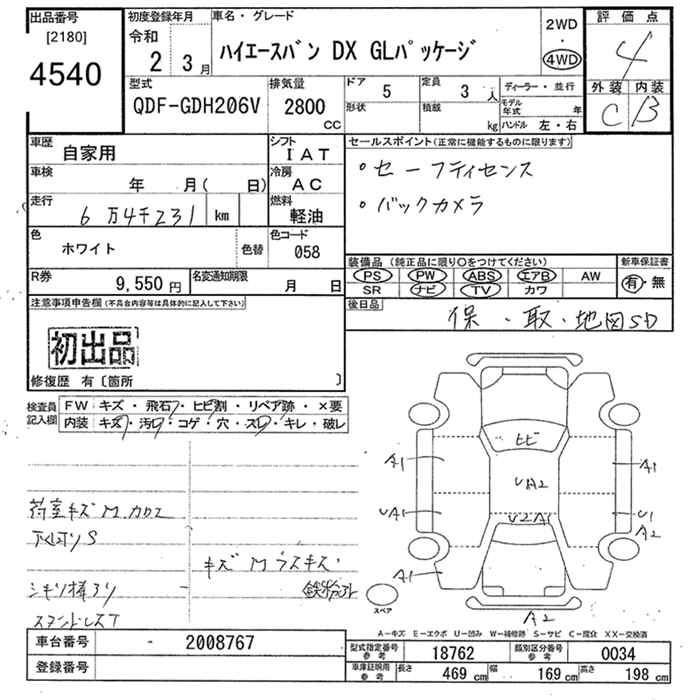 出品番号 初度登録年月 車名・グレード 2WD 評価点
[2180] 令和 ・
4540 2 3月 ハイエースバン DX GLパッケージ 4WD 4
型式 排気量 ドア 定員 ディーラー・並行 外装 内装
QDF-GDH206V 2800 CC 5 3 人 モデル年式 年 C B
形状 積載 kg ハンドル 左・右
車歴 自家用 シフト IAT セールスポイント(正常に機能するものに限ります)
車検 年 月( 日) 冷房 AC ・セーフティセンス
走行 6万4千231 km 燃料 軽油 ・バックカメラ
色 ホワイト 色替 色コード 058
装備品 (純正品に限り○をつけてください) 新車保証書
R券 9,550 円 名変通知期限 月 日 PS PW ABS エアB AW 有・無
SR ナビ TV カワ
注意事項申告欄(不具合内容等は具体的に記入して下さい) 後日品 保・取・地図SD
初出品
修復歴 有〔箇所 〕
検査員記入欄 FW キズ・飛石・ヒビ割・リペア跡・×要
内装 キズ・汚レ・コゲ・穴・スレ・キレ・破レ
ヒビ
A1 UA2 A1
UA1 U2A1 U1
A2
荷室キズM カロエ
キズM ラスキズ・
A1
スペア
A2
A-キズ E-エクボ U-凹み W-補修跡 S-サビ C-腐食 XX-交換済
車台番号 - 2008767 型式指定番号参考 18762 類別区分番号参考 0034
登録番号 車庫証明用参考 長さ 469 cm 幅 169 cm 高さ 198 cm